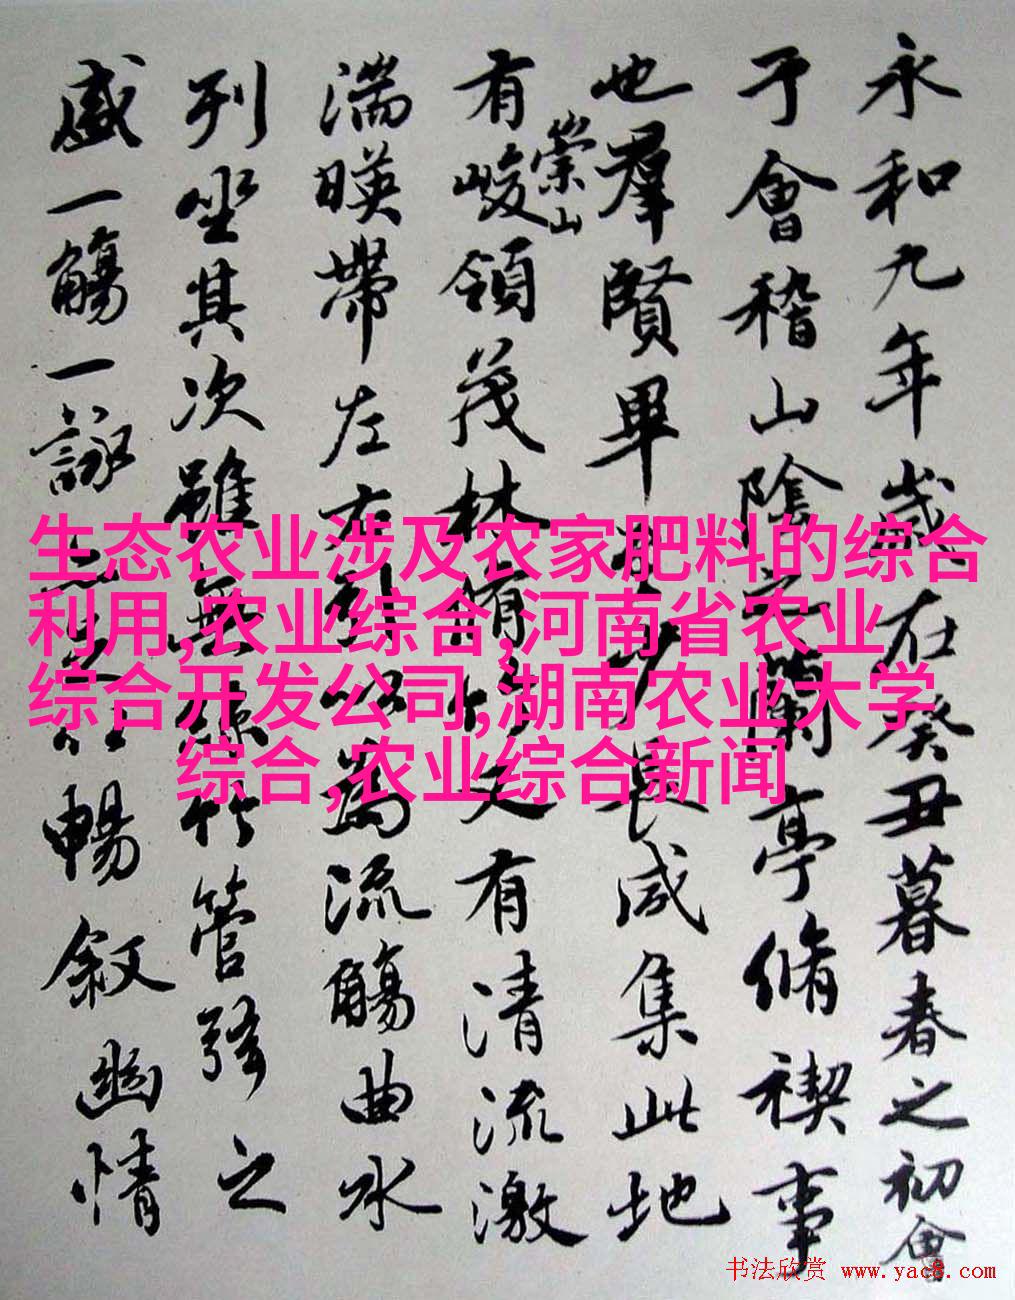 永和九年歲在癸丑暮春之初會
于會稽山陰之蘭亭脩禊事
也羣賢畢至少長咸集此地
有崇山峻領茂林脩竹又有清流激
湍暎帶左右引以為流觴曲水
列坐其次雖無絲竹管弦之
盛一觴一詠亦足以暢敘幽情
生态农业涉及农家肥料的综合
利用,农业综合,河南省农业
综合开发公司,湖南农业大学
综合,农业综合新闻
书法欣赏 www.yac8.com